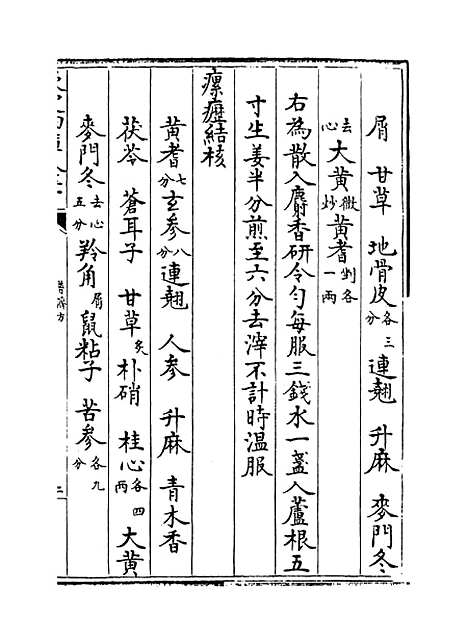 屑 甘草 地骨皮各三分 連翹 升麻 麥門冬
去心 大黄微炒 黄耆剉各一兩
右為散入麝香研令勻每服三錢水一盞入蘆根五
寸生姜半分煎至六分去滓不計時温服
瘰癧結核
黄耆七分 玄参八分 連翹 人參 升麻 青木香
茯苓 蒼耳子 甘草炙 朴硝 桂心各四兩 大黄
麥門冬去心五分 羚角屑 鼠粘子 苦參各九分
普濟方